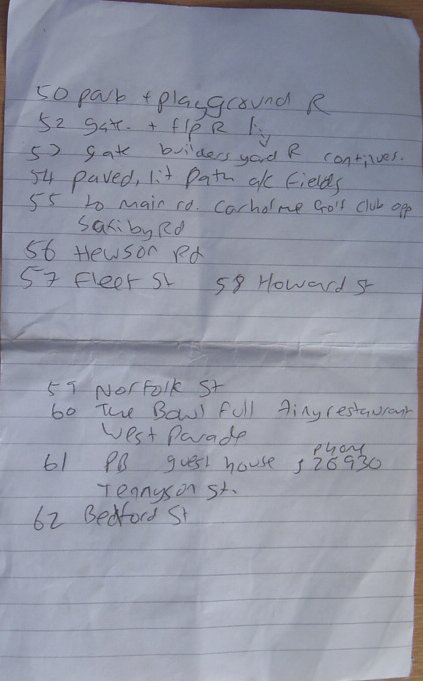 50 park + playground R
52 gate + f/p R
53 gate builders yard R continues.
54 paved, lit path a/c fields
55 to main rd. Carholme Golf Club opp
Saxilby Rd
56 Hewson Rd
57 Fleet St 58 Howard St
59 Norfolk St
60 The Bowl Full tiny restaurant
West Parade
phone
61 guest house 526930
Tennyson St.
62 Bedford St